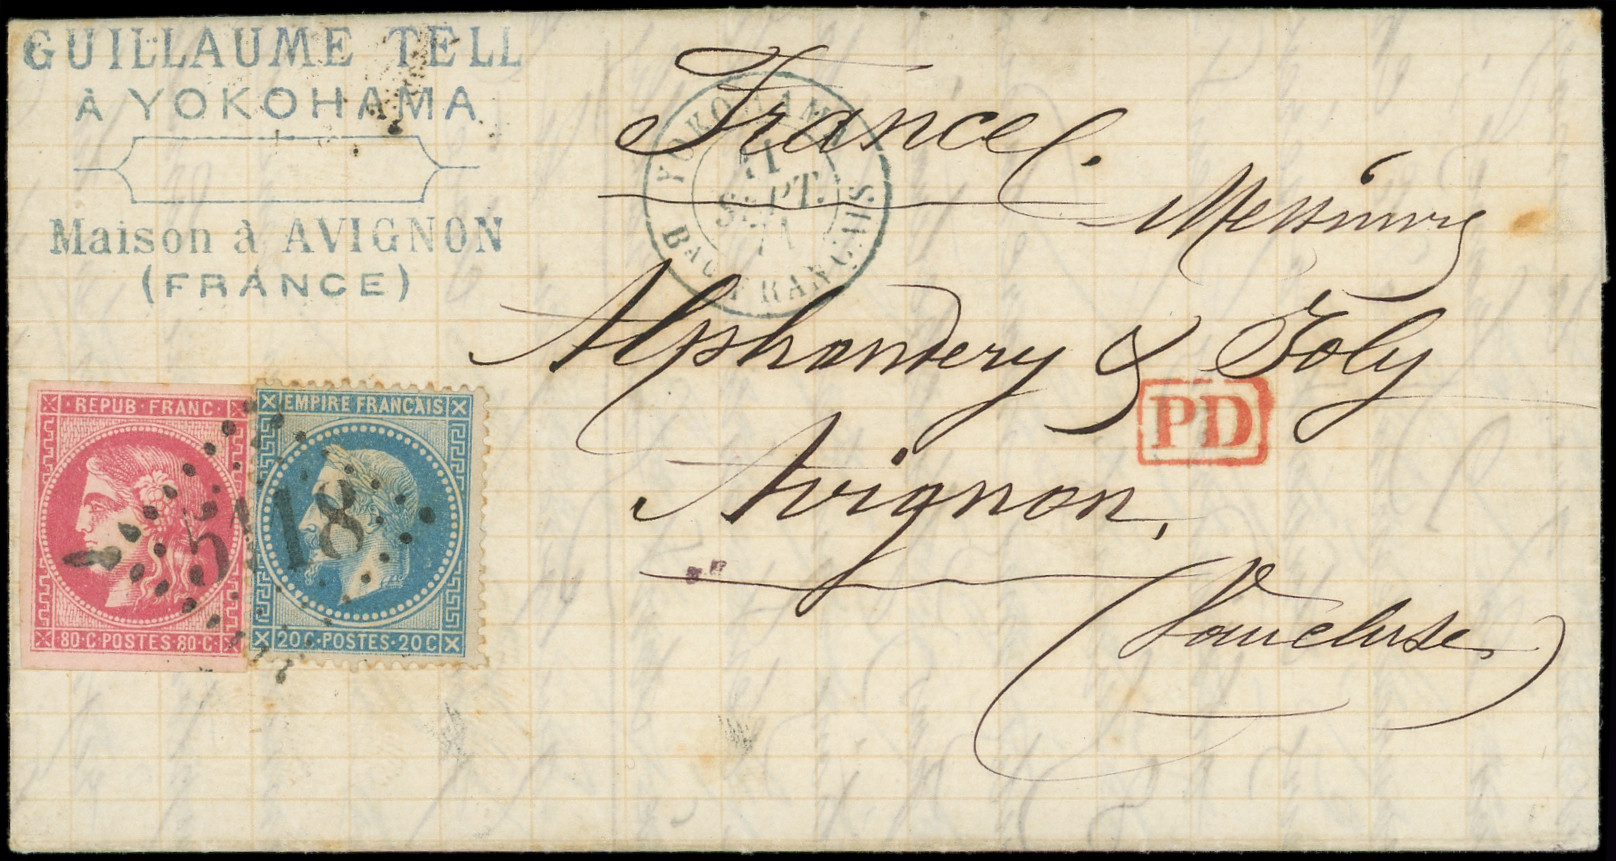 GUILLAUME TELL
À YOKOHAMA
Maison à AVIGNON
(FRANCE)
YOKOHAMA
11
SEPT.
71
BAU FRANÇAIS
France.
Messieurs
Alphandery & Joly
PD
Avignon,
Vaucluse
REPUB·FRANC·
80·C·POSTES·80·C·
EMPIRE FRANÇAIS
20C·POSTES·20C
5118